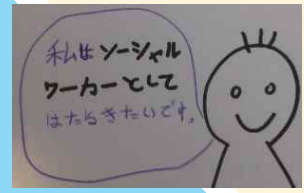 私はソーシャル
ワーカーとして
はたらきたいです。